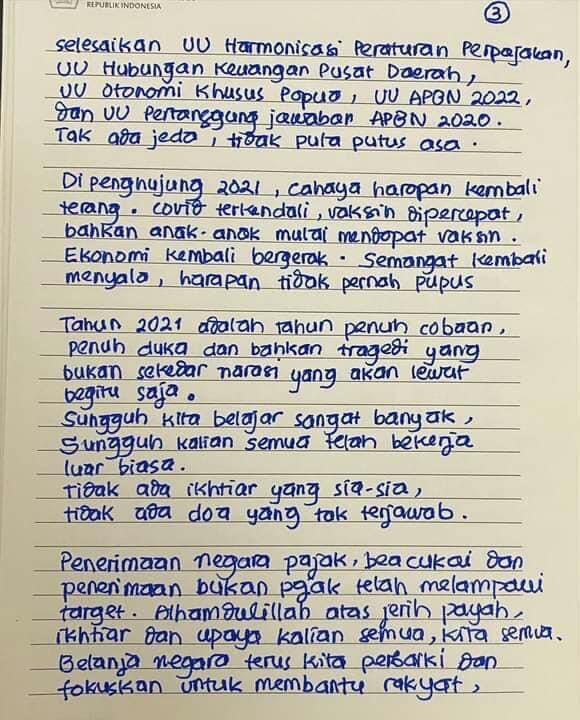 REPUBLIK INDONESIA
3
selesaikan UU Harmonisasi Peraturan Perpajakan,
UU Hubungan Keuangan Pusat Daerah,
UU Otonomi Khusus Papua, UU APBN 2022,
dan UU Pertanggung jawaban APBN 2020.
Tak ada jeda, tidak pula putus asa.
Di penghujung 2021, cahaya harapan kembali
terang. Covid terkendali, vaksin dipercepat,
bahkan anak-anak mulai mendapat vaksin.
Ekonomi kembali bergerak. Semangat kembali
menyala, harapan tidak pernah pupus
Tahun 2021 adalah tahun penuh cobaan,
penuh duka dan bahkan tragedi yang
bukan sekedar narasi yang akan lewat
begitu saja.
Sungguh kita belajar sangat banyak,
Sungguh kalian semua telah bekerja
luar biasa.
Tidak ada ikhtiar yang sia-sia,
tidak ada doa yang tak terjawab.
Penerimaan negara pajak, bea cukai dan
penerimaan bukan pajak telah melampaui
target. Alhamdulillah atas jerih payah,
ikhtiar dan upaya kalian semua, kita semua.
Belanja negara terus kita perbaiki dan
fokuskan untuk membantu rakyat,